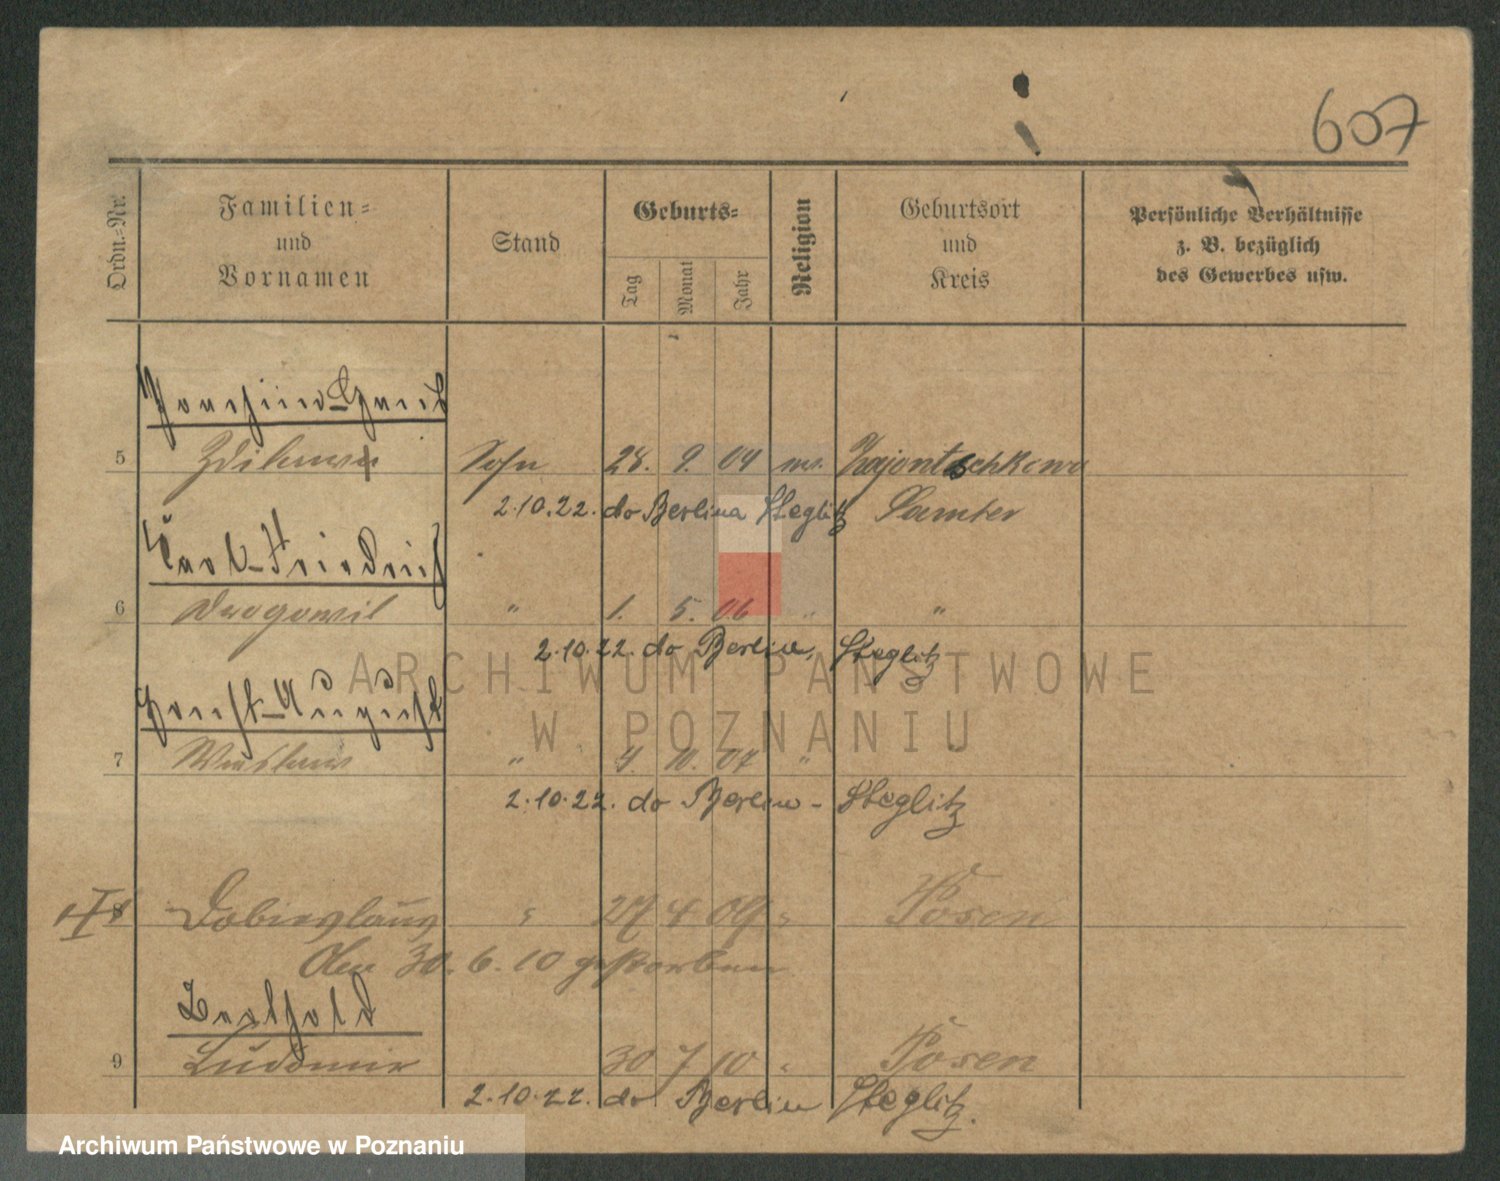 607
Ordn.=Nr.
Familien=
und
Vornamen
Stand
Geburts=
Tag
Monat
Jahr
Religion
Geburtsort
und
Kreis
Persönliche Verhältnisse
z. B. bezüglich
des Gewerbes usw.
5 Sohn 28. 9. 04
2.10.22. do Berlina Steglitz Samter
Carl-Friedrich
6 Drogomil " 1. 5. 06 " "
2.10.22. do Berlin, Steglitz
Horst-August
7 " 4. 10. 07 " "
2.10.22. do Berlin - Steglitz
8 27 4 09 Posen
Den 30. 6. 10 gestorben
Berthold
9 Ludomir 30 7 10 Posen
2.10.22. do Berlin Steglitz.
ARCHIWUM PAŃSTWOWE
W POZNANIU
Archiwum Państwowe w Poznaniu